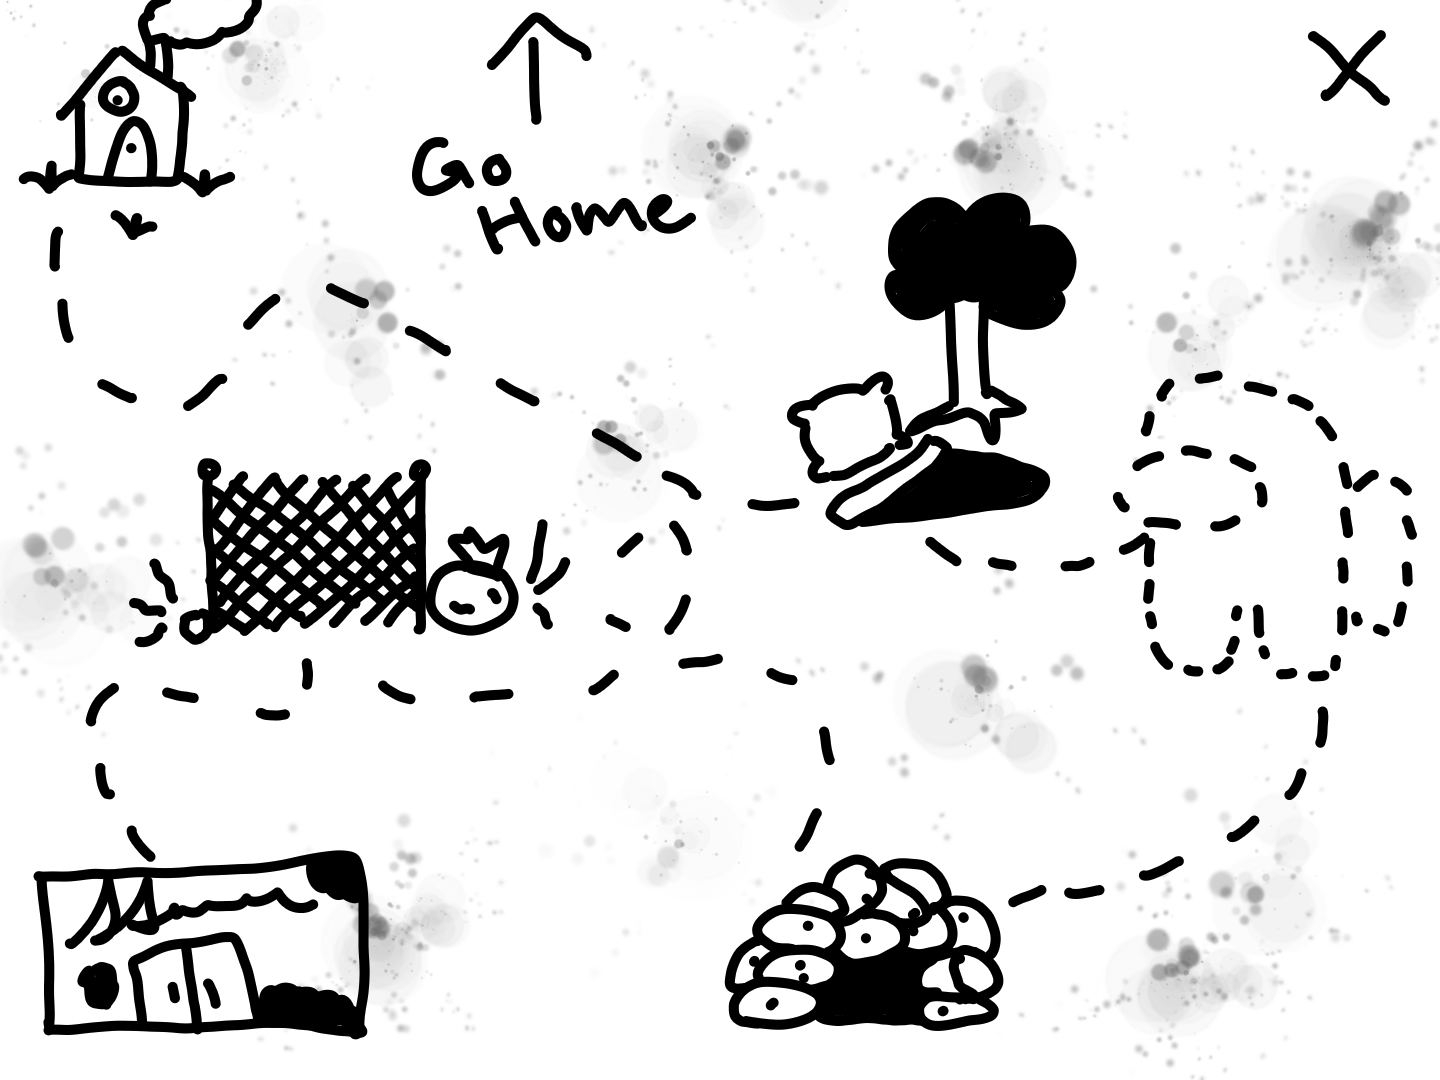 Go
Home